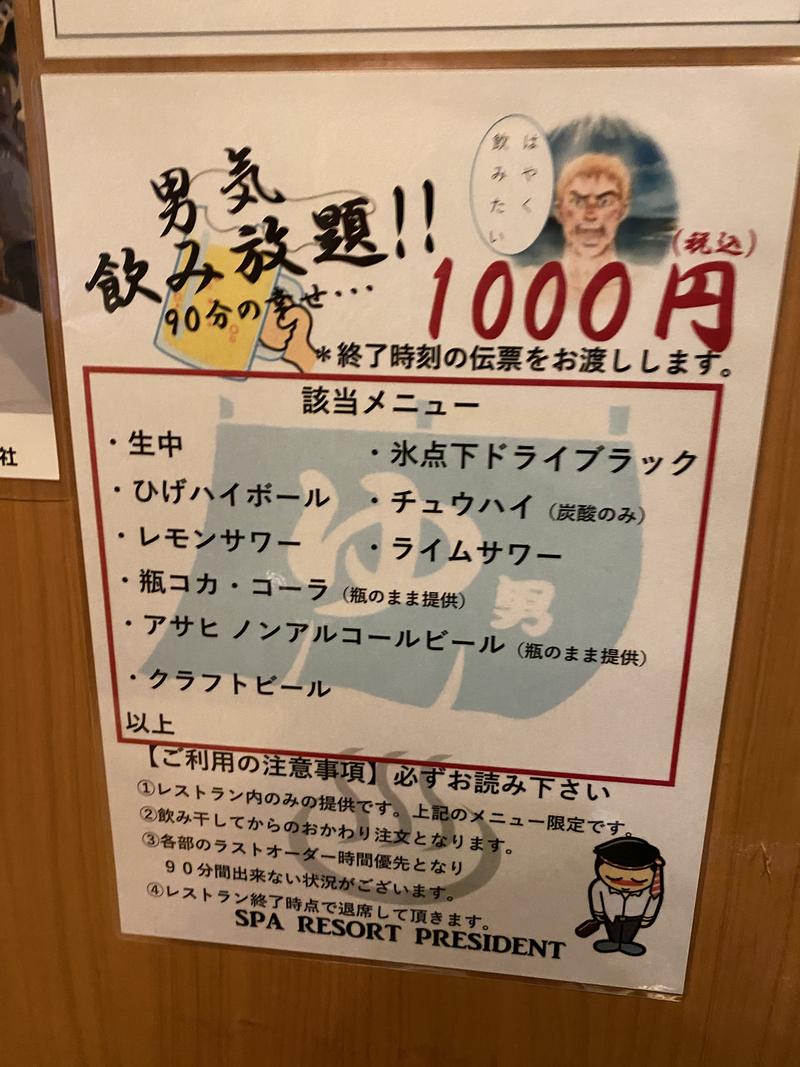 男気
飲み放題!!
90分の幸せ…
はやく
飲みたい
(税込)
1000円
*終了時刻の伝票をお渡しします。
該当メニュー
・生中
・氷点下ドライブラック
・ひげハイボール
・チュウハイ（炭酸のみ）
・レモンサワー
・ライムサワー
・瓶コカ・コーラ（瓶のまま提供）
・アサヒ ノンアルコールビール（瓶のまま提供）
・クラフトビール
以上
ゆ
男
【ご利用の注意事項】必ずお読み下さい
①レストラン内のみの提供です。上記のメニュー限定です。
②飲み干してからのおかわり注文となります。
③各部のラストオーダー時間優先となり
９０分間出来ない状況がございます。
④レストラン終了時点で退席して頂きます。
SPA RESORT PRESIDENT
社